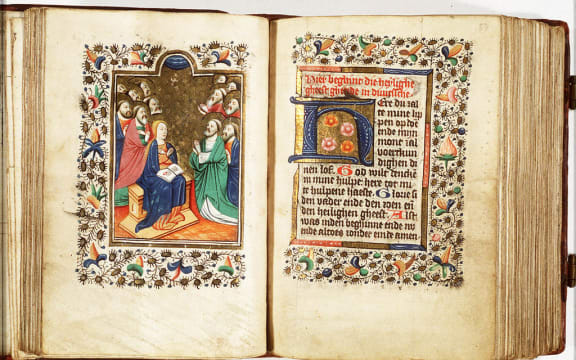 Hier beghint die heilighe
gheest ghetide in duutsche
Here du salt
mine lip
pen opdoe
ende mijn
mont sal
voertkun
dighen di
nen lof. God wilt dencken
in mine hulpe: here tot mi
re hulpene haeste. Glorie si
den vader ende den soen en
den heilighen gheest. Alst
was inden beghinne ende nv
ende altoes sonder einde amen